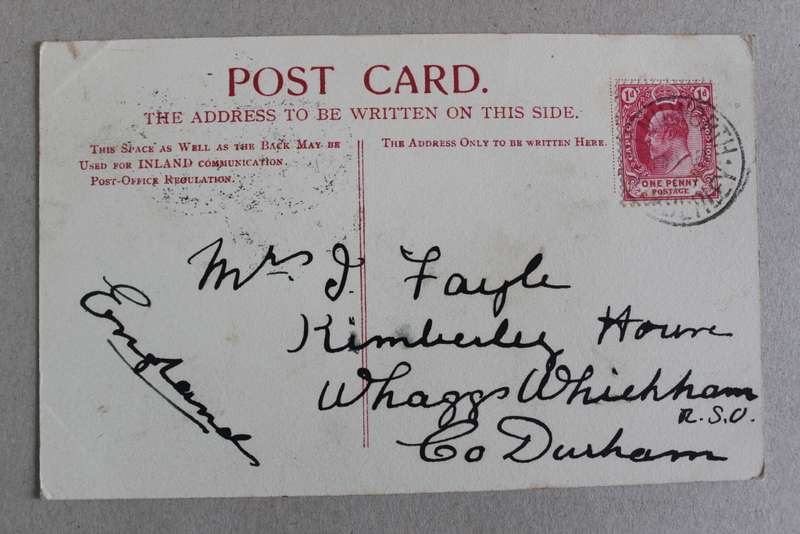 POST CARD.
THE ADDRESS TO BE WRITTEN ON THIS SIDE.
THIS SPACE AS WELL AS THE BACK MAY BE
USED FOR INLAND COMMUNICATION.
POST-OFFICE REGULATION.
THE ADDRESS ONLY TO BE WRITTEN HERE.
1d 1d
ONE PENNY
POSTAGE
Mrs. J. Fayle
Kimberley House
Whaggs Whickham
R.S.O.
Co Durham
England